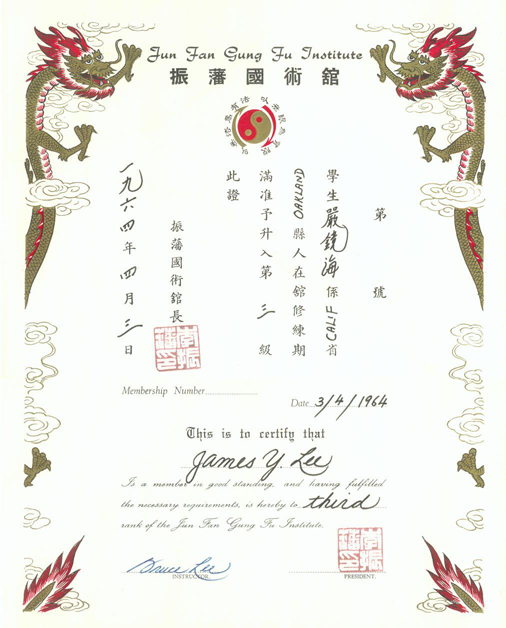 Jun Fan Gung Fu Institute
振藩國術館
第 號
學生嚴鏡海係CALIF省
OAKLAND縣人在館修練期
滿准予升入第三級
此證
振藩國術館長
李振藩印
一九六四年四月三日
Membership Number
Date 3/4/1964
This is to certify that
James Y. Lee
Is a member in good standing, and having fulfilled
the necessary requirements, is hereby to third
rank of the Jun Fan Gung Fu Institute.
李振藩印
Bruce Lee
INSTRUCTOR
PRESIDENT.